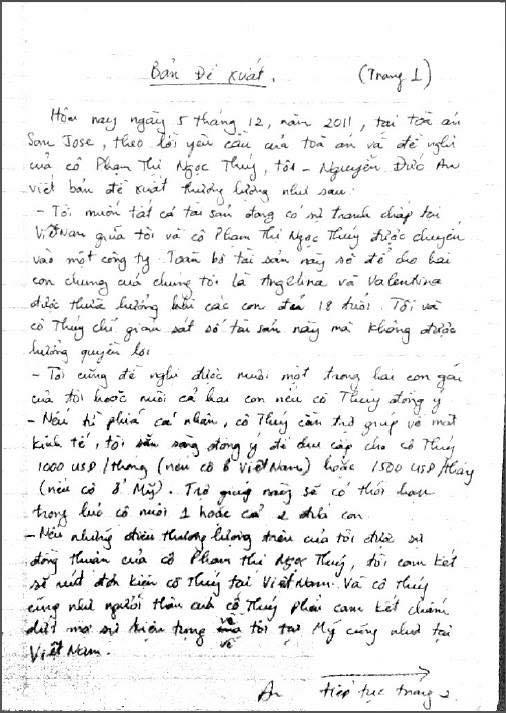 Bản Đề xuất. (Trang 1)
Hôm nay ngày 5 tháng 12, năm 2011, tại toà án
San Jose, theo lời yêu cầu của toà án và đề nghị
của cô Phạm Thị Ngọc Thuý, tôi - Nguyễn Đức An
viết bản đề xuất thương lượng như sau:
- Tôi muốn tất cả tài sản đang có sự tranh chấp tại
Việt Nam giữa tôi và cô Phạm Thị Ngọc Thuý được chuyển
vào một công ty. Toàn bộ tài sản này sẽ để cho hai
con chung của chúng tôi là Angelina và Valentina
được thừa hưởng khi các con đến 18 tuổi. Tôi và
cô Thuý chỉ giám sát số tài sản này mà không được
hưởng quyền lợi
- Tôi cũng đề nghị được nuôi một trong hai con gái
của tôi hoặc nuôi cả hai con nếu cô Thuý đồng ý
- Nếu từ phía cá nhân, cô Thuý cần trợ giúp về mặt
kinh tế, tôi sẵn sàng đồng ý để chu cấp cho cô Thuý
1000 USD/tháng (nếu cô ở Việt Nam) hoặc 1500 USD/tháng
(nếu cô ở Mỹ). Trợ giúp này sẽ có thời hạn
trong lúc cô nuôi 1 hoặc cả 2 đứa con
- Nếu những điều thương lượng trên của tôi được sự
đồng thuận của cô Phạm Thị Ngọc Thuý, tôi cam kết
sẽ rút đơn kiện cô Thuý tại Việt Nam. Và cô Thuý
cũng như người thân của cô Thuý phải cam kết chấm
dứt mọi sự kiện tụng về tôi tại Mỹ cũng như tại
Việt Nam. về
An tiếp tục trang 2.